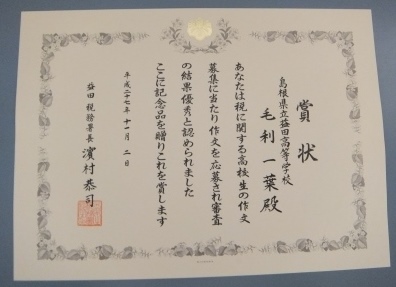 賞状
島根県立益田高等学校
毛利一葉殿
あなたは税に関する高校生の作文
募集に当たり作文を応募され審査
の結果優秀と認められました
ここに記念品を贈りこれを賞します
平成二十七年十一月二日
益田税務署長 濵村恭司